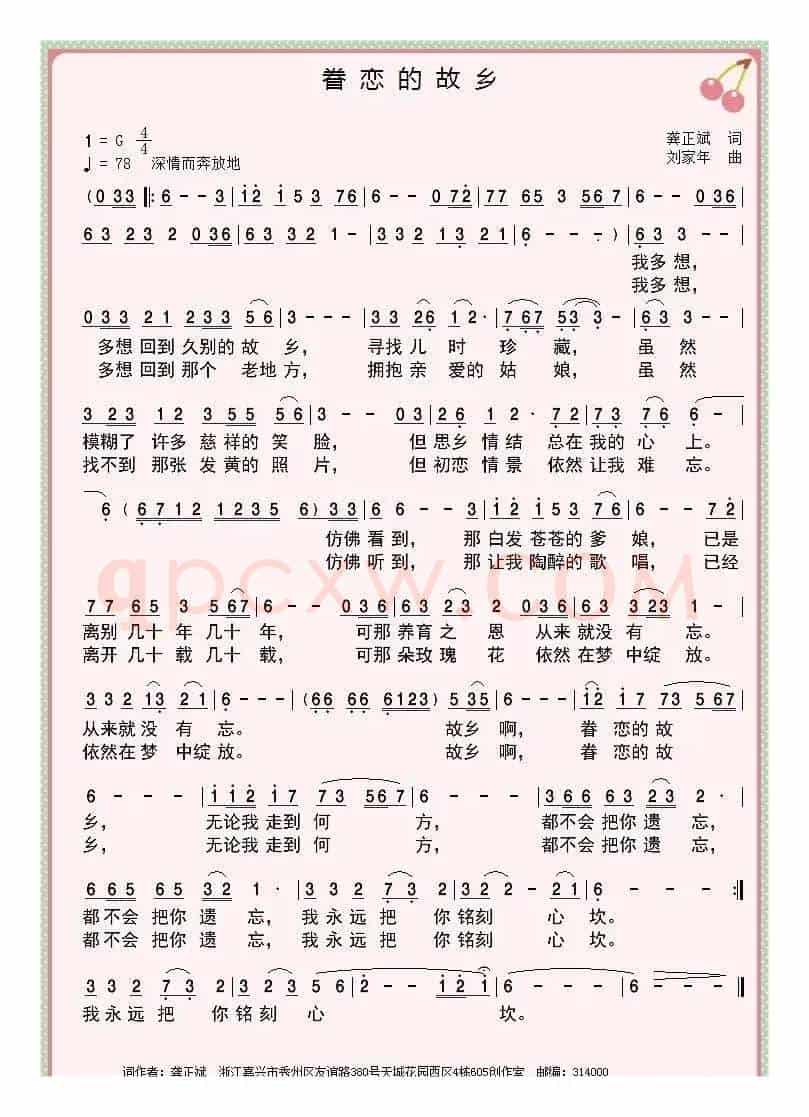 眷恋的故乡
1 = G 4/4
龚正斌 词
♩= 78 深情而奔放地
刘家年 曲
(0 33 |: 6 - - 3 | i 2 i 5 3 76 | 6 - - 0 72 | 77 65 3 567 | 6 - - 0 36
63 23 2 036 | 63 32 1 - | 332 13 21 | 6 - - - ) | 63 3 - - |
我多想,
我多想,
033 21 233 56 | 3 - - - | 33 26 12· | 767 53 3 - | 63 3 - -
多想回到久别的故乡, 寻找儿时珍藏, 虽然
多想回到那个 老地方, 拥抱亲爱的姑娘, 虽然
3 23 12 355 56 | 3 - - 03 | 26 12· 72 | 72 73 76 | 6 -
模糊了 许多慈祥的笑脸, 但思乡情结 总在我的心上。
找不到 那张发黄的照片, 但初恋情景 依然让我难忘。
6 (6712 1235 6) 33 | 63 35 6 - | 6 - - 3 | i2 i53 76 | 6 - - 72
仿佛看到, 那白发苍苍的爹娘, 已是
仿佛听到, 那让我陶醉的歌唱, 已经
qpcxw.COM
77 65 3 567 | 6 - - 036 | 63 23 2 036 | 63 3 323 | 1 -
离别几十年几十年, 可那养育之恩 从来就没有忘。
离开几十载几十载, 可那朵玫瑰花 依然在梦中绽放。
332 13 21 | 6 - - - | (66 66 6123) | 5 35 6 - - | i2 i7 73 567
从来就没有忘。 故乡啊, 眷恋的故
依然在梦中绽放。 故乡啊, 眷恋的故
6 - - - | ii2 i7 73 567 | 6 - - - | 366 63 23 2·
乡, 无论我走到何方, 都不会把你遗忘,
乡, 无论我走到何方, 都不会把你遗忘,
665 65 32 1· | 332 73 2 | 332 12 - 21 | 6 - - - :|
都不会把你遗忘, 我永远把你铭刻心坎。
都不会把你遗忘, 我永远把你铭刻心坎。
332 73 2 | 332 35 6 | 2 - - i2 i | 6 - - - | 6 - - - ||
我永远把你铭刻心坎。
词作者：龚正斌 浙江嘉兴市秀州区友谊路380号天城花园西区4栋605创作室 邮编：314000